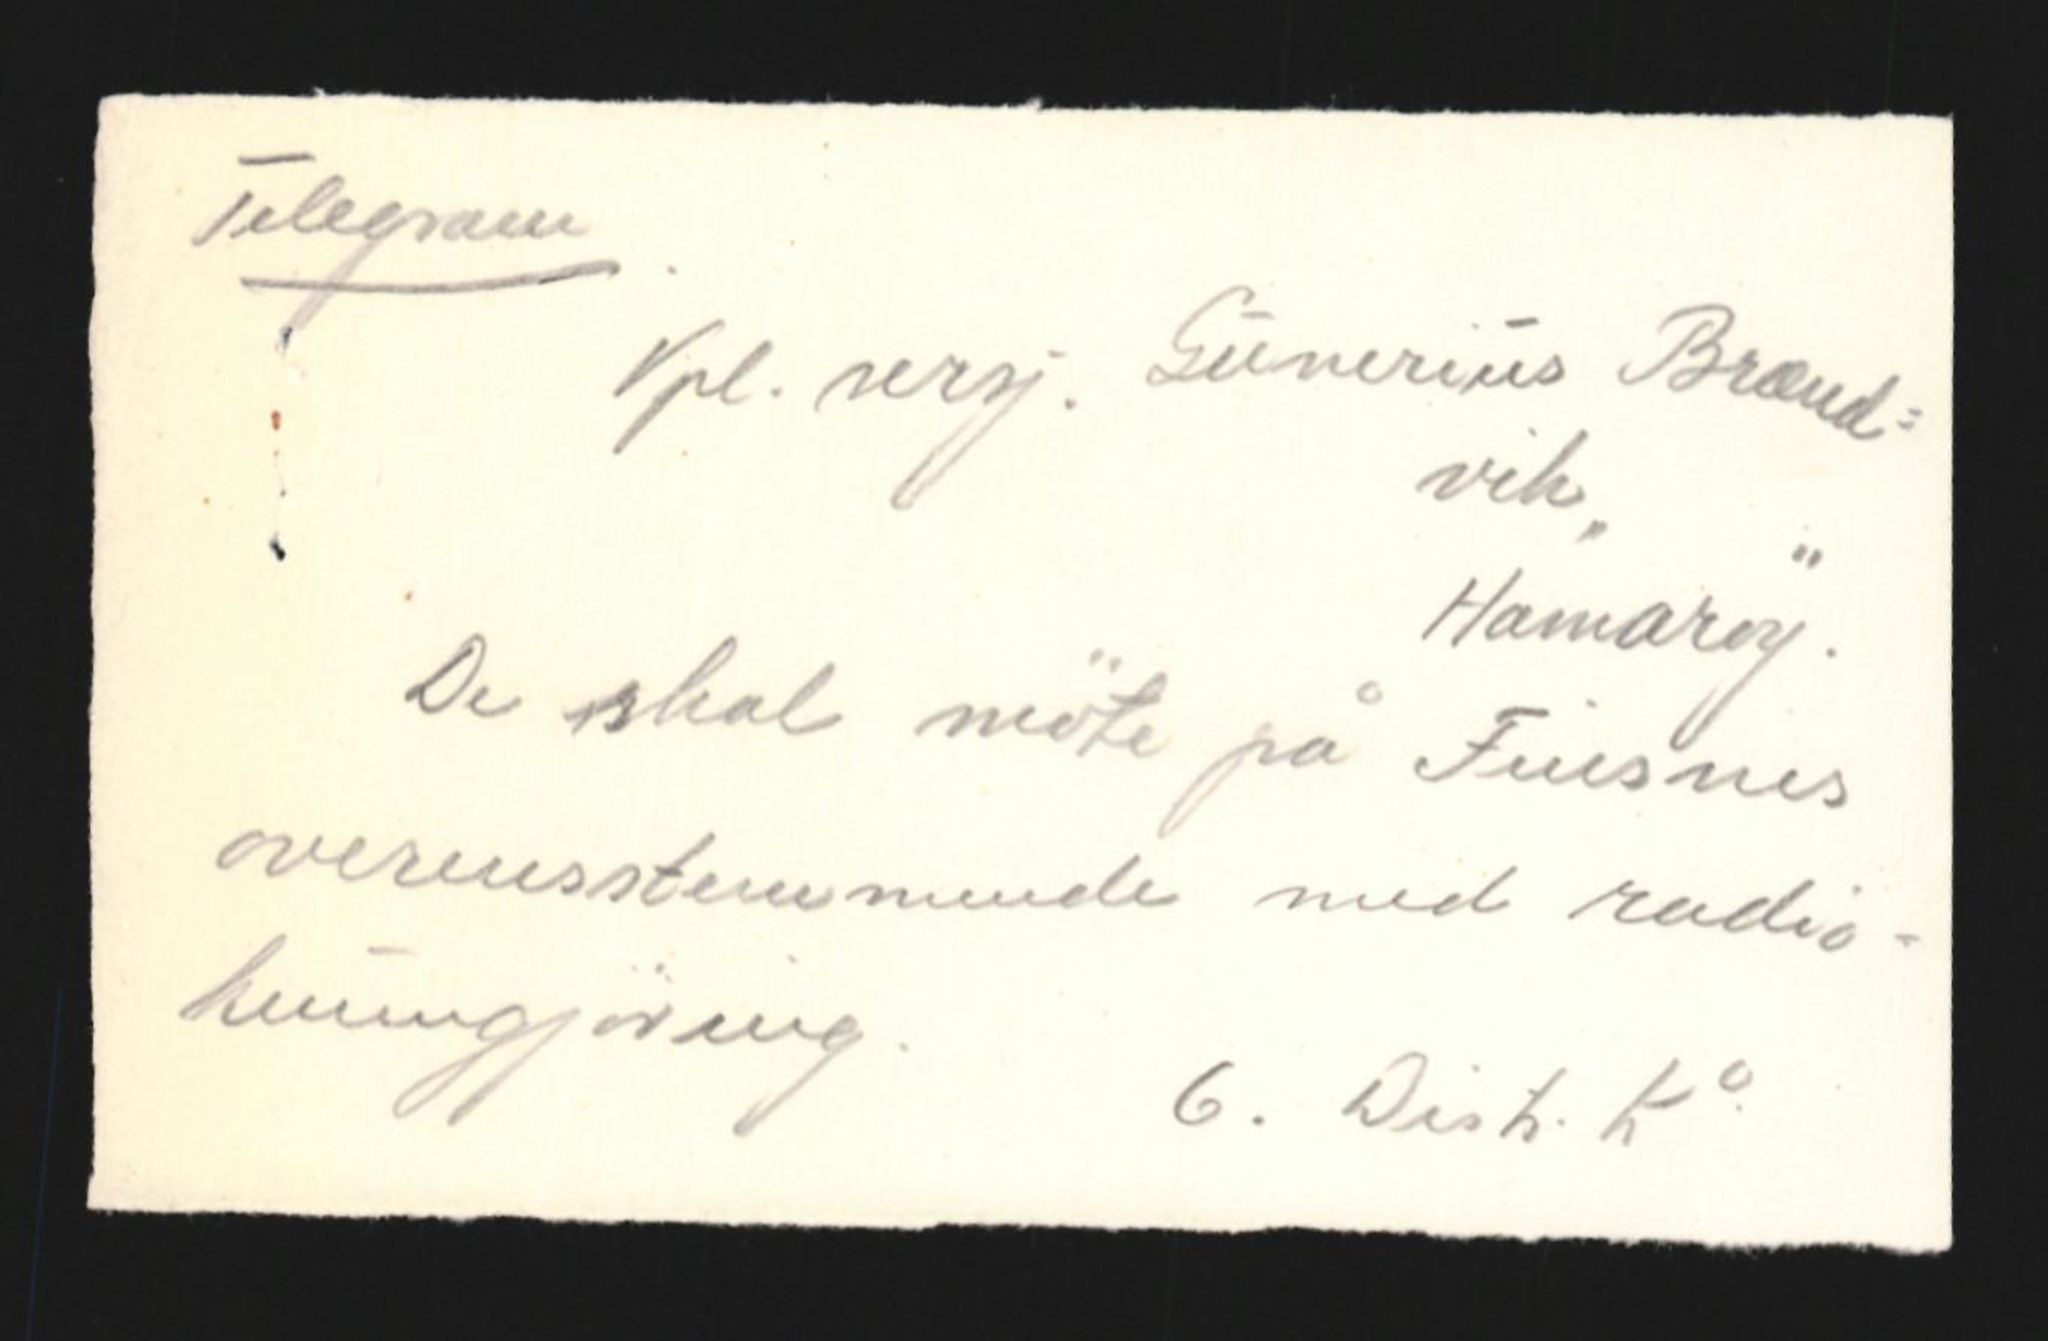 Telegram.
Vpl. sersj. Gunerius Brænd=
vik,
"Hamaröy".
De skal möte på Finsnes
overensstemmende med radio-
kunngjöring.
6. Distr. Ko.